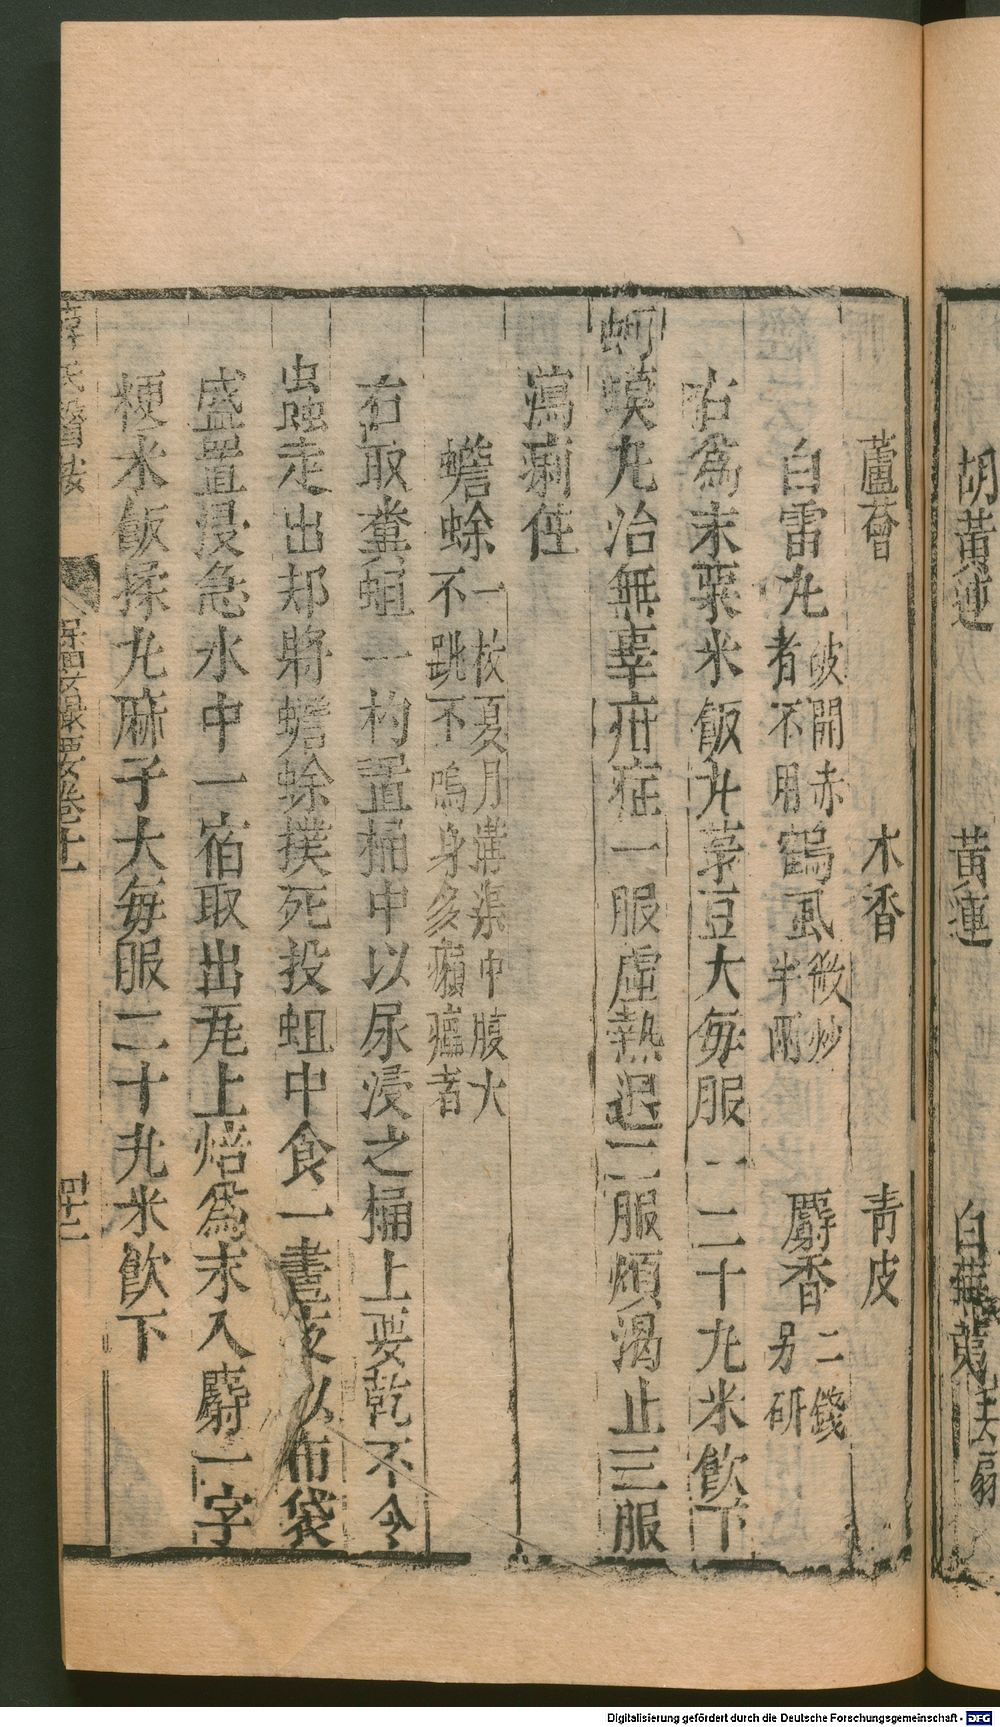 胡黃連　黃連　白蕪荑去扇
蘆薈　木香　青皮
白雷丸破開赤者不用　鶴虱微炒半兩　麝香二錢另研
右為末粟米飯丸菉豆大每服一二十丸米飲下
蚵蟆丸治無辜疳症一服虛熱退二服煩渴止三服
瀉痢住
蟾蜍一枚夏月溝渠中腹大不跳不鳴身多癩瘟者
右取糞蛆一杓置桶中以尿浸之桶上要乾不令
虫走出却將蟾蜍撲死投蛆中食一晝夜以布袋
盛置浸急水中一宿取出尾上焙為末入麝一字
粳米飯揉丸麻子大每服二十丸米飲下
薛氏醫按　保嬰撮要卷十一　四十二
Digitalisierung gefördert durch die Deutsche Forschungsgemeinschaft - DFG